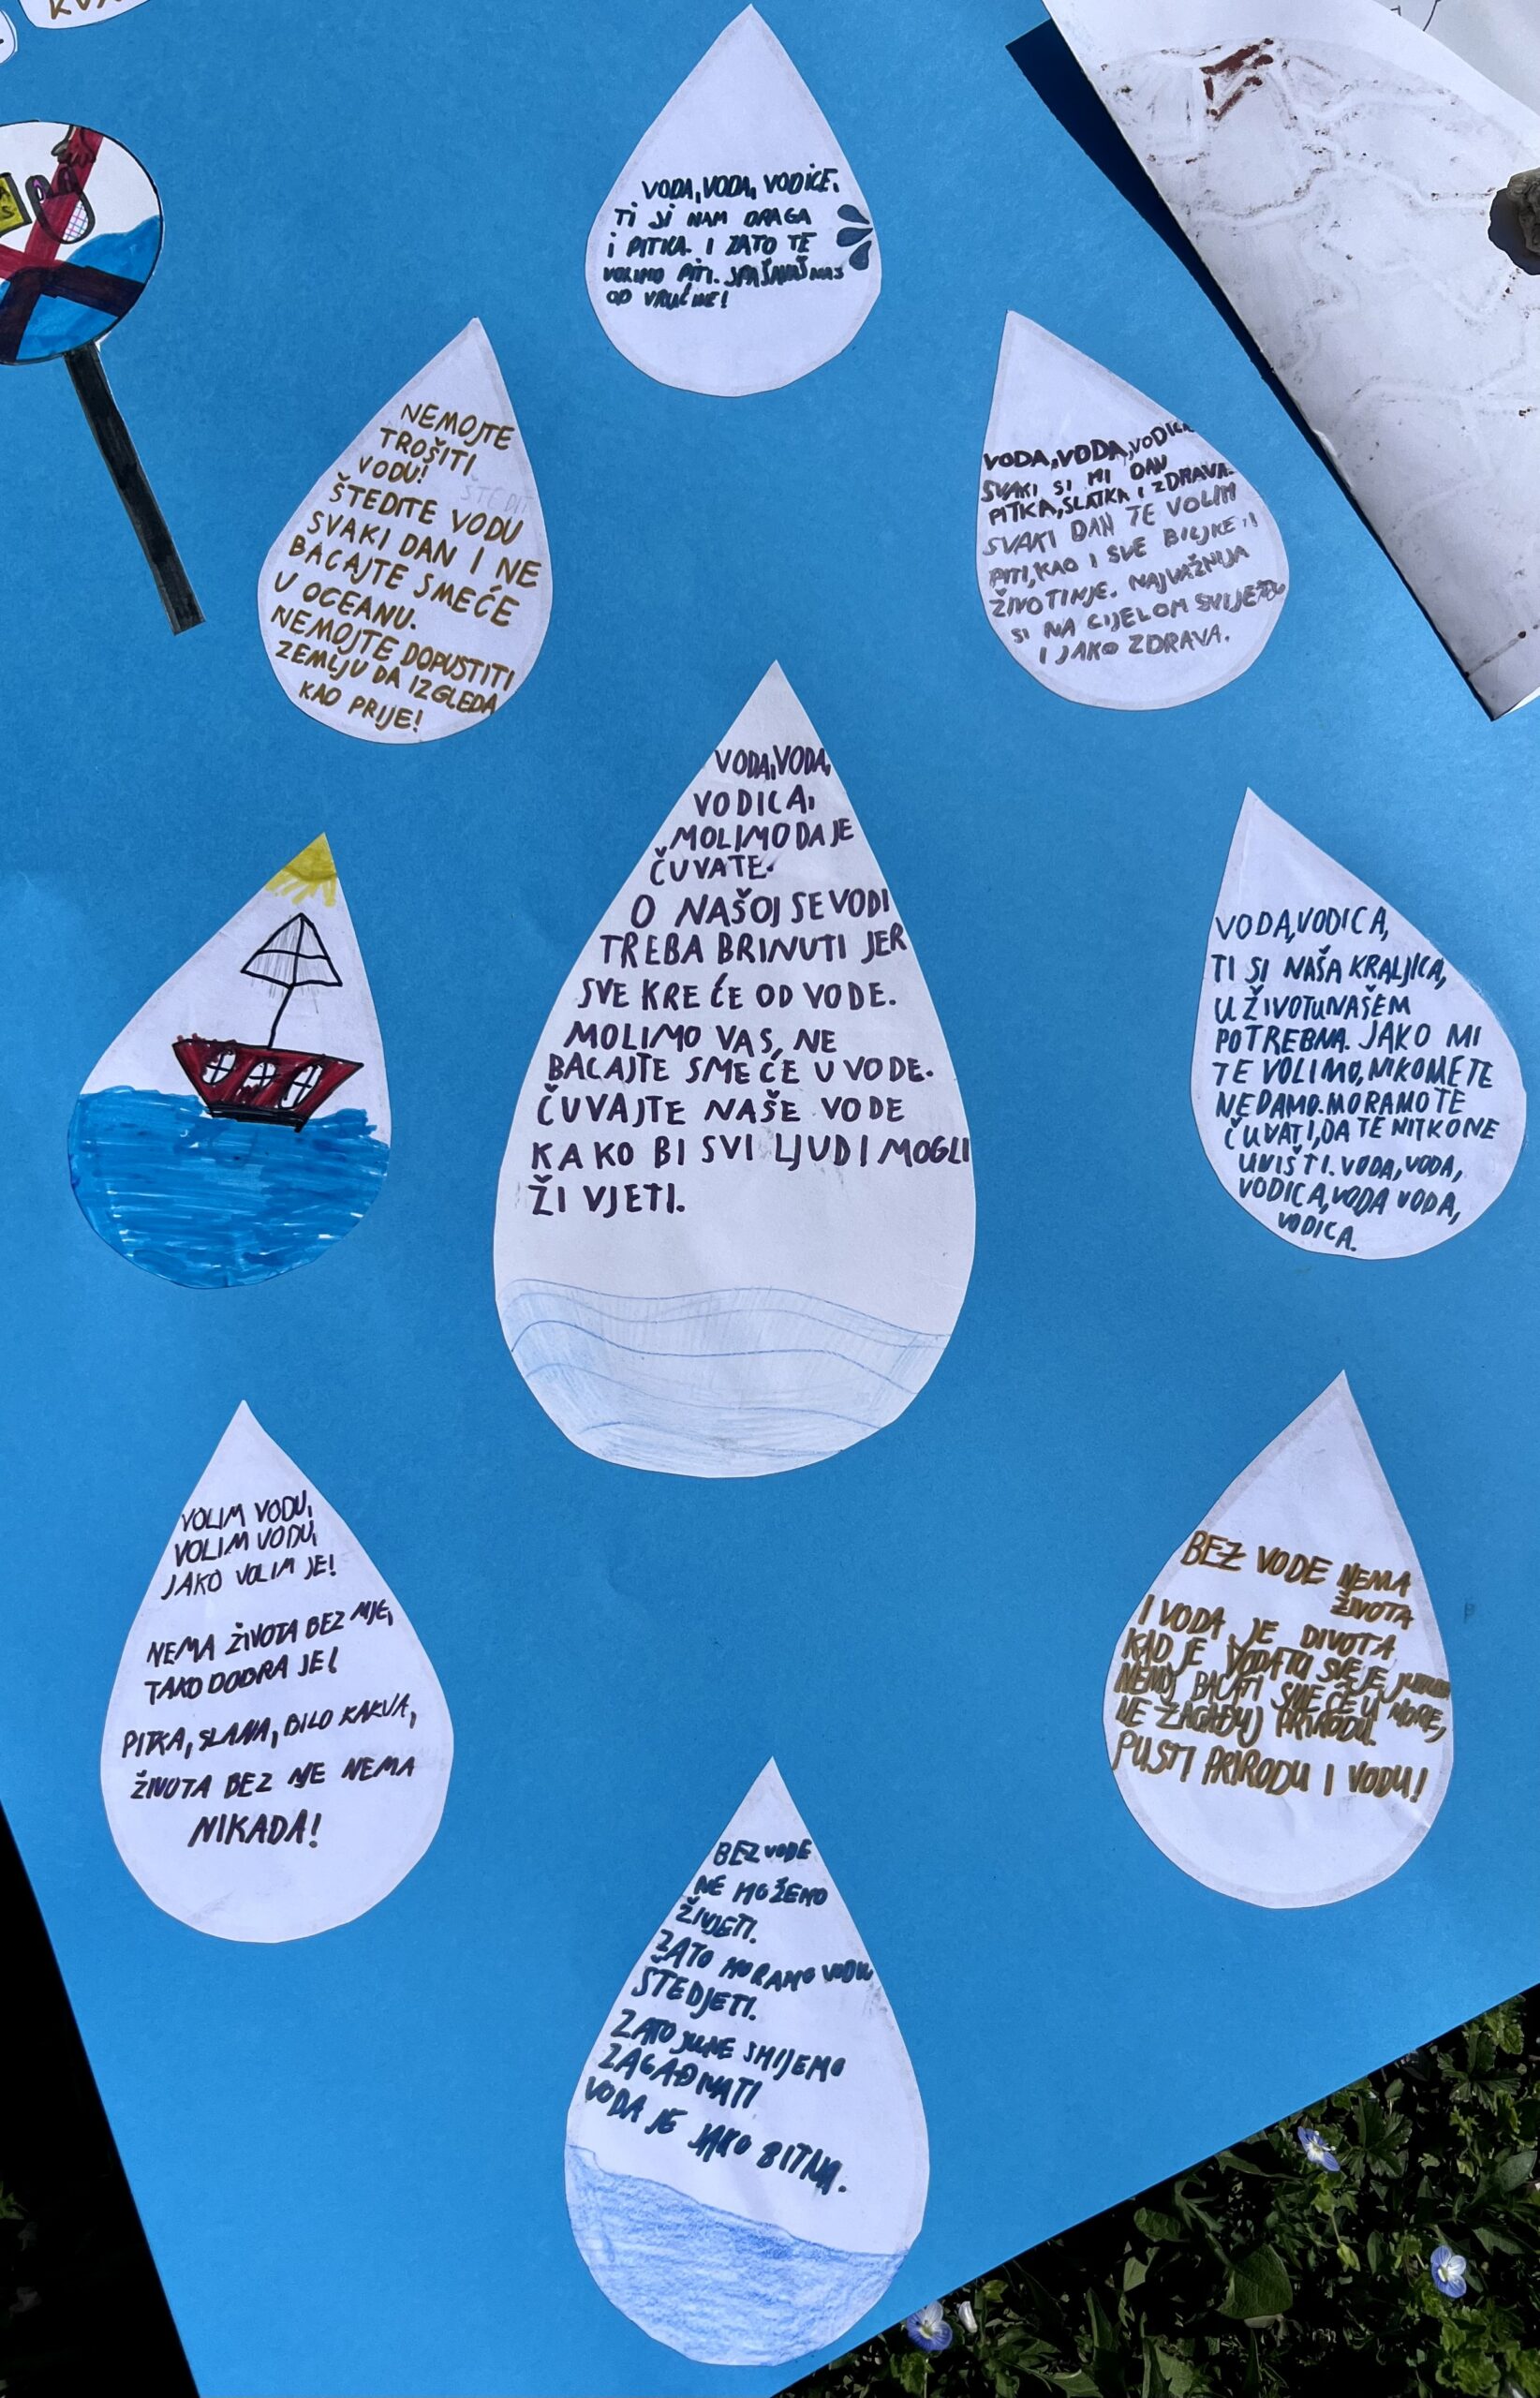 KVA
VODA, VODA, VODICE,
TI SI NAM DRAGA
I PITKA. I ZATO TE
VOLIMO PITI. SPAŠAVAŠ NAS
OD VRUĆINE!
NEMOJTE
TROŠITI
VODU!
ŠTEDITE VODU
SVAKI DAN I NE
BACAJTE SMEĆE
U OCEANU.
NEMOJTE DOPUSTITI
ZEMLJU DA IZGLEDA
KAO PRIJE!
VODA, VODA, VODICA
SVAKI SI MI DAN
PITKA, SLATKA I ZDRAVA.
SVAKI DAN TE VOLIM
PITI, KAO I SVE BILJKE I
ŽIVOTINJE. NAJVAŽNIJA
SI NA CIJELOM SVIJETU
I JAKO ZDRAVA.
VODA, VODA,
VODICA,
MOLIMO DA JE
ČUVATE.
O NAŠOJ SE VODI
TREBA BRINUTI JER
SVE KREĆE OD VODE.
MOLIMO VAS, NE
BACAJTE SMEĆE U VODE.
ČUVAJTE NAŠE VODE
KAKO BI SVI LJUDI MOGLI
ŽIVJETI.
VODA, VODICA,
TI SI NAŠA KRALJICA,
U ŽIVOTU NAŠEM
POTREBNA. JAKO MI
TE VOLIMO, NIKOME TE
NE DAMO. MORAMO TE
ČUVATI, DA TE NITKO NE
UNIŠTI. VODA, VODA,
VODICA, VODA VODA,
VODICA.
VOLIM VODU,
VOLIM VODU,
JAKO VOLIM JE!
NEMA ŽIVOTA BEZ NJE,
TAKO DOBRA JE!
PITKA, SLANA, BILO KAKVA,
ŽIVOTA BEZ NJE NEMA
NIKADA!
BEZ VODE NEMA
ŽIVOTA
I VODA JE DIVOTA
KAD JE VODA TU SVE JE
NEMOJ BACATI SMEĆE U MORE,
NE ZAGAĐUJ PRIRODU.
PUSTI PRIRODU I VODU!
BEZ VODE
NE MOŽEMO
ŽIVJETI.
ZATO MORAMO VODU
ŠTEDJETI.
ZATO JU NE SMIJEMO
ZAGAĐIVATI
VODA JE JAKO BITNA.